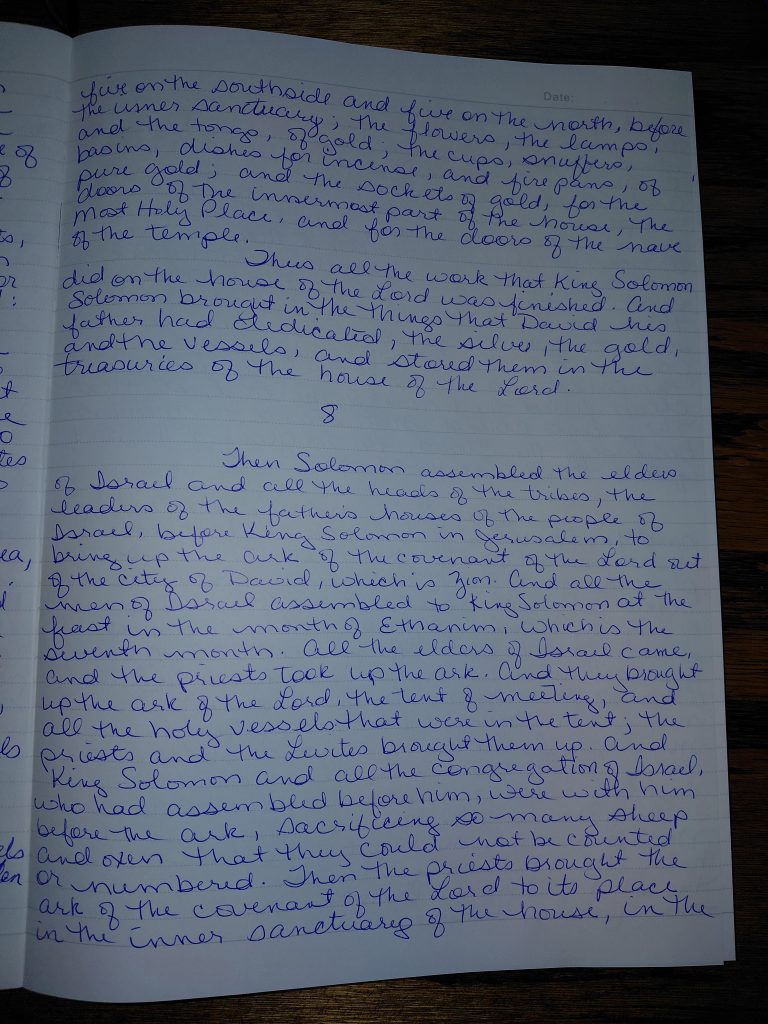 Date:
five on the southside and five on the north, before
the inner sanctuary; the flowers, the lamps,
and the tongs, of gold; the cups, snuffers,
basins, dishes for incense, and fire pans, of
pure gold; and the sockets of gold, for the
doors of the innermost part of the house, the
Most Holy Place, and for the doors of the nave
of the temple.
Thus all the work that King Solomon
did on the house of the Lord was finished. And
Solomon brought in the things that David his
father had dedicated, the silver, the gold,
and the vessels, and stored them in the
treasuries of the house of the Lord.
8
Then Solomon assembled the elders
of Israel and all the heads of the tribes, the
leaders of the fathers houses of the people of
Israel, before King Solomon in Jerusalem, to
bring up the ark of the covenant of the Lord out
of the city of David, which is Zion. And all the
men of Israel assembled to King Solomon at the
feast in the month of Ethanim, which is the
seventh month. All the elders of Israel came,
and the priests took up the ark. And they brought
up the ark of the Lord, the tent of meeting, and
all the holy vessels that were in the tent; the
priests and the Levites brought them up. And
King Solomon and all the congregation of Israel,
who had assembled before him, were with him
before the ark, sacrificing so many sheep
and oxen that they could not be counted
or numbered. Then the priests brought the
ark of the covenant of the Lord to its place
in the inner sanctuary of the house, in the